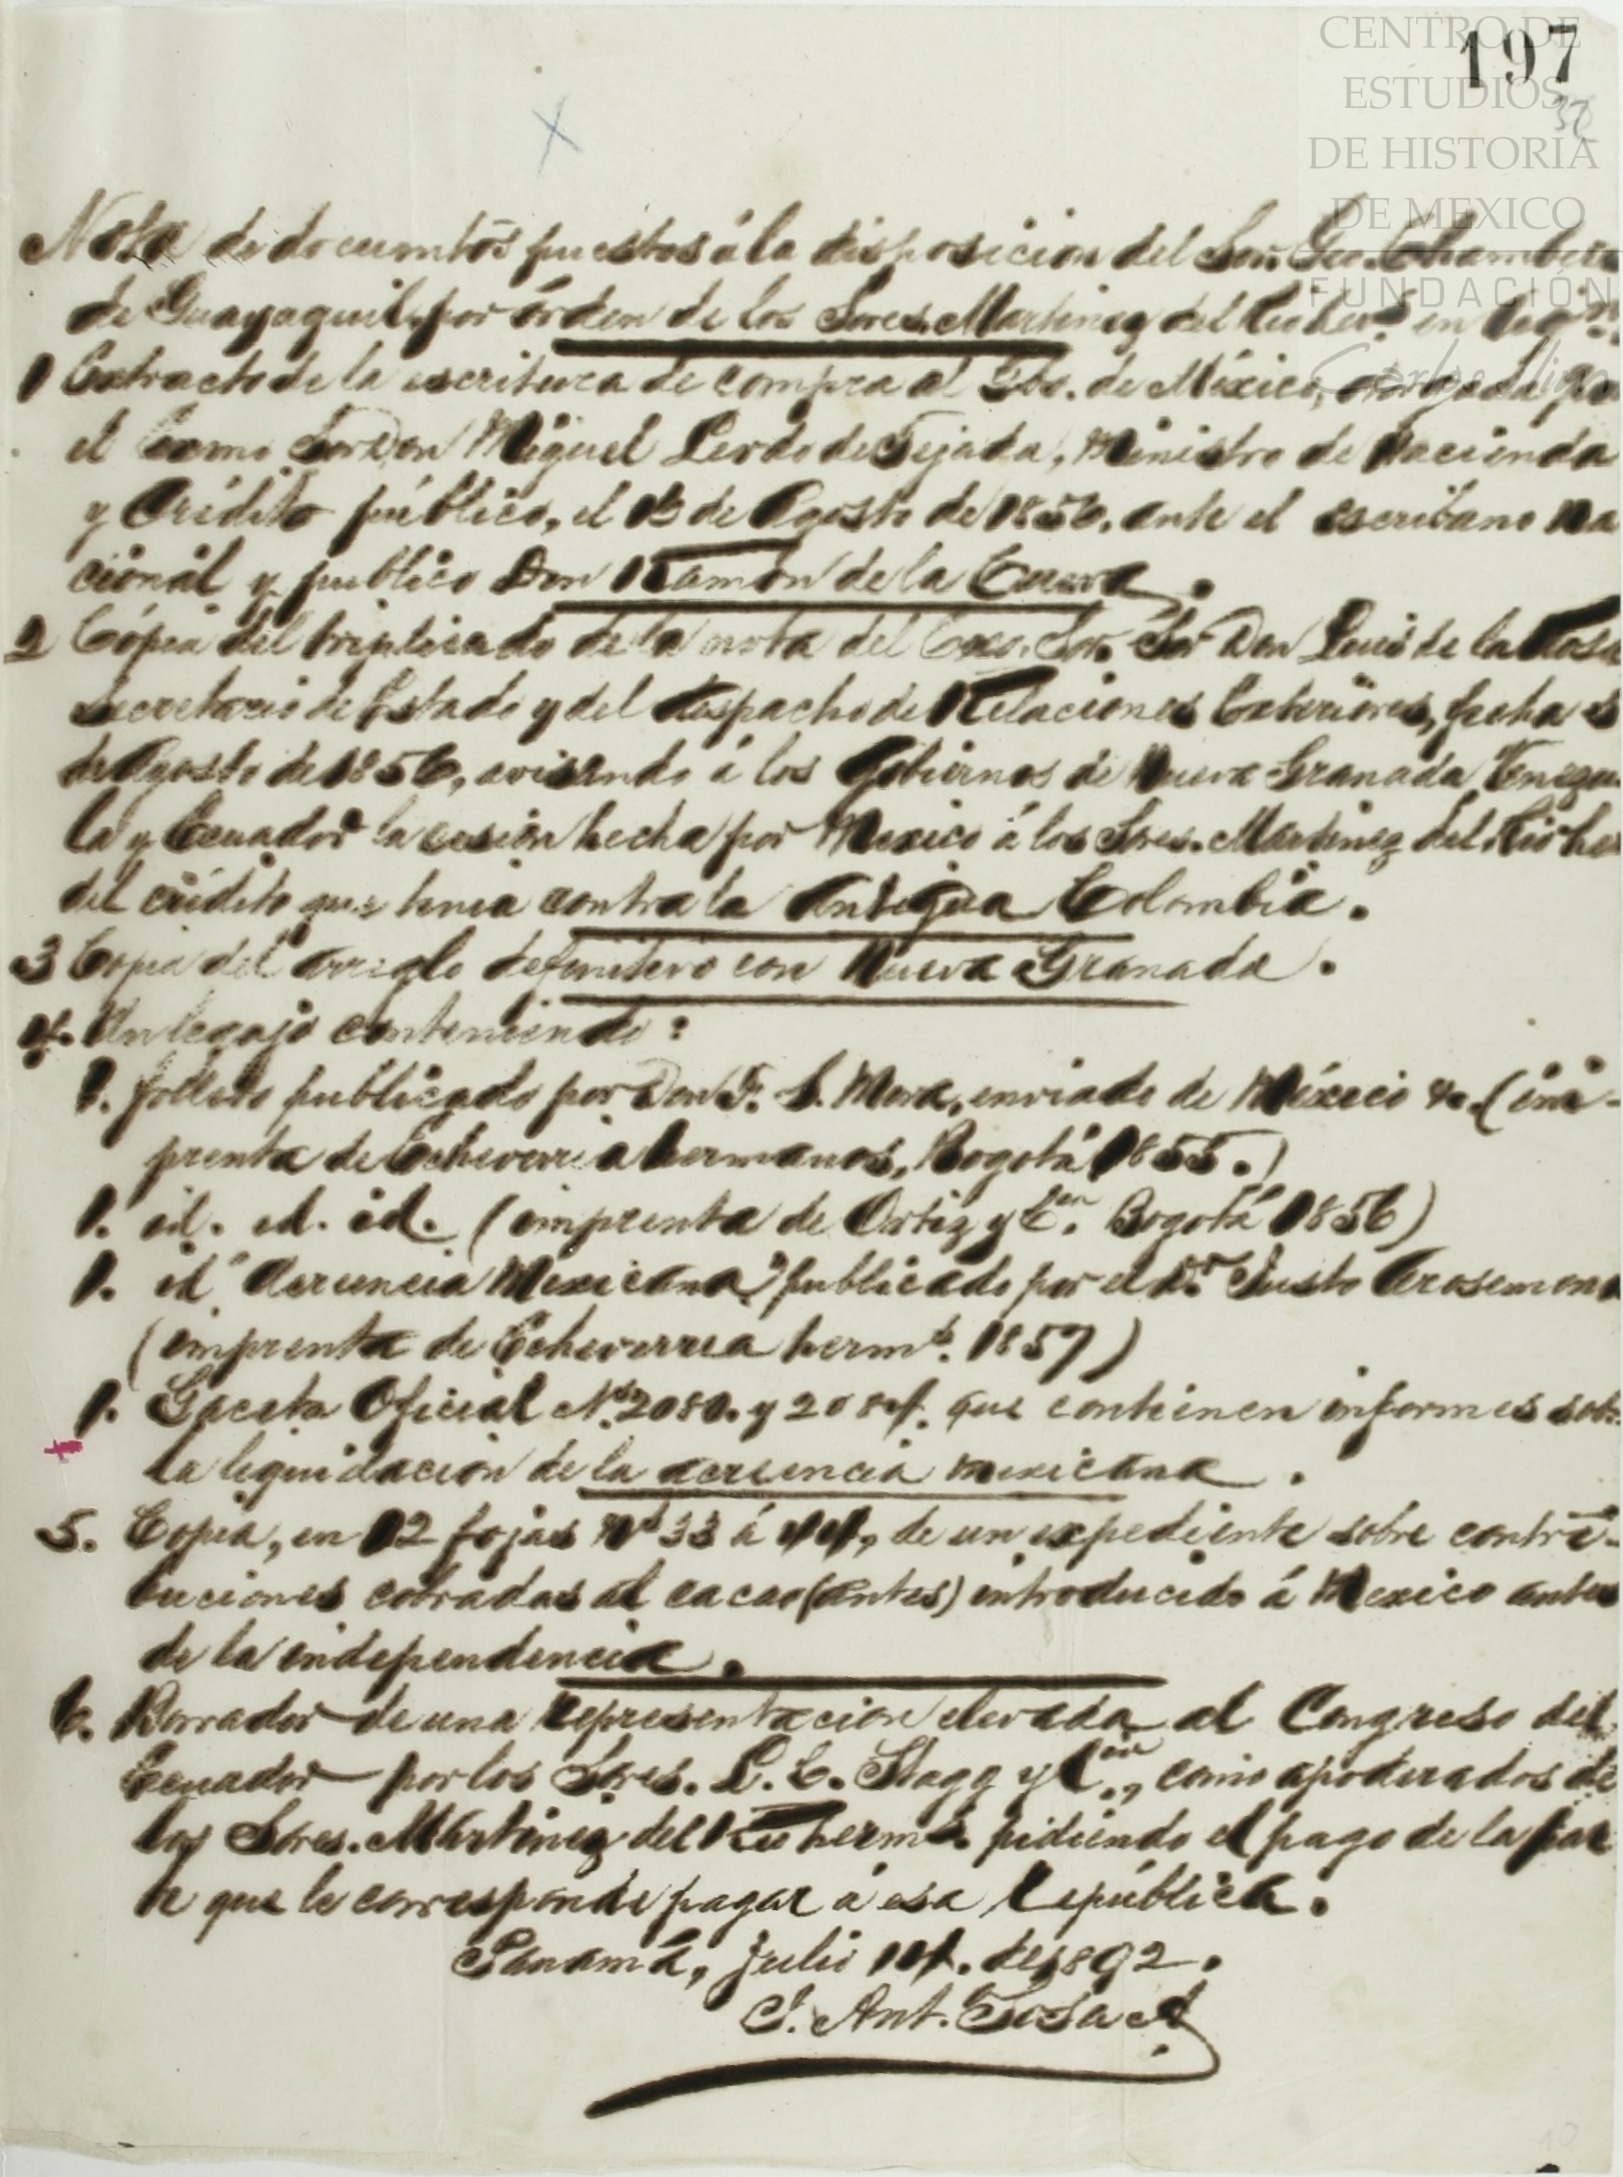 CENTRO DE
ESTUDIOS
DE HISTORIA
DE MEXICO
FUNDACIÓN
197
32
Nota de documentos puestos á la disposicion del Sor. Geo. Chambers
de Guayaquil, por órden de los Sores. Martinez del Rio hers. en
1 Extracto de la escritura de compra al Gbo. de México, otorgada po
el Exmo Sor Don Miguel Lerdo de Tejada, Ministro de Hacienda
y Crédito público, el 13 de Agosto de 1856, ante el escribano na
cional y publico Don Ramon de la Cueva.
2 Cópia del triplicado de la nota del Exco. Sor. Sor Don Luis de la Rosa
secretario de Estado y del despacho de Relaciones Exteriores, fecha
de Agosto de 1856, avisando á los Gobiernos de Nueva Granada Venezu
la y Ecuador la cesion hecha por Mexico á los Sres. Martinez del Rio he
del crédito que tenia contra la Antigua Colombia.
3 Copia del arreglo definitivo con Nueva Granada.
4. Un legajo conteniendo:
1. folleto publicado por Don F. S. Mora, enviado de México &a. (im-
prenta de Echeverria hermanos, Bogotá 1855.)
1. id. id. id. (imprenta de Ortiz y Cia. Bogotá 1856)
1. id "Acreencia Mexicana" publicado por el Dr. Justo Arosemena
(imprenta de Echeverria herms. 1857)
1. Gaceta Oficial Nos. 2080. y 2084. que contienen informes sob
la liquidacion de la acreencia mexicana.
5. Copia, en 12 fojas Nos 33 á 44, de un expediente sobre contri-
buciones cobradas al cacao (antes) introducido á Mexico antes
de la independencia.
6. Borrador de una representacion elevada al Congreso del
Ecuador por los Sores. L. C. Stagg y Cia., como apoderados de
los Sores. Martinez del Rio herms. pidiendo el pago de la par
te que le corresponde pagar á esa República.
Panamá, Julio 14. de 1892.
J. Ant. Sosa